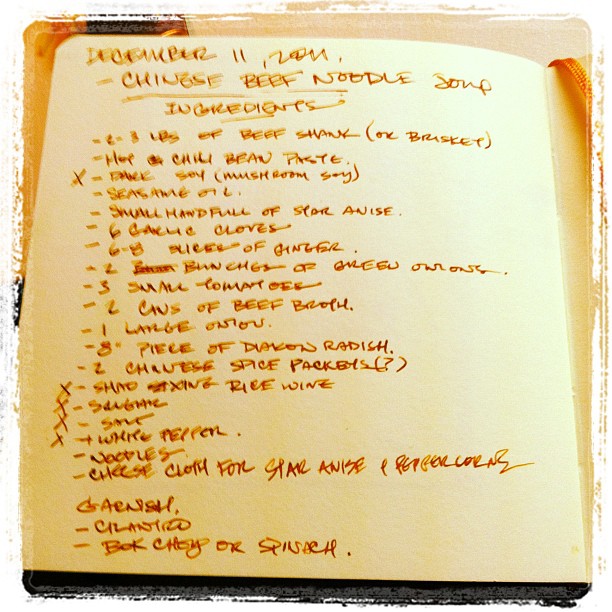 DECEMBER 11, 2011.
- CHINESE BEEF NOODLE SOUP
INGREDIENTS
- 2-3 LBS OF BEEF SHANK (OR BRISKET)
- HOT CHILI BEAN PASTE.
X - DARK SOY (MUSHROOM SOY)
- SEASAME OIL.
- SMALL HANDFULL OF STAR ANISE.
- 6 GARLIC CLOVES
- 6-8 SLICES OF GINGER.
- 2 BUNCHES OF GREEN ONIONS.
- 3 SMALL TOMATOES
- 2 CANS OF BEEF BROTH.
- 1 LARGE ONION.
- 8" PIECE OF DIAKON RADISH.
- 2 CHINESE SPICE PACKETS(?)
X - SHAO XING RICE WINE
X - SUGAR
X - SALT
X + WHITE PEPPER.
- NOODLES.
- CHEESE CLOTH FOR STAR ANISE & PEPPERCORNS
GARNISH.
- CILANTRO
- BOK CHOY OR SPINACH.